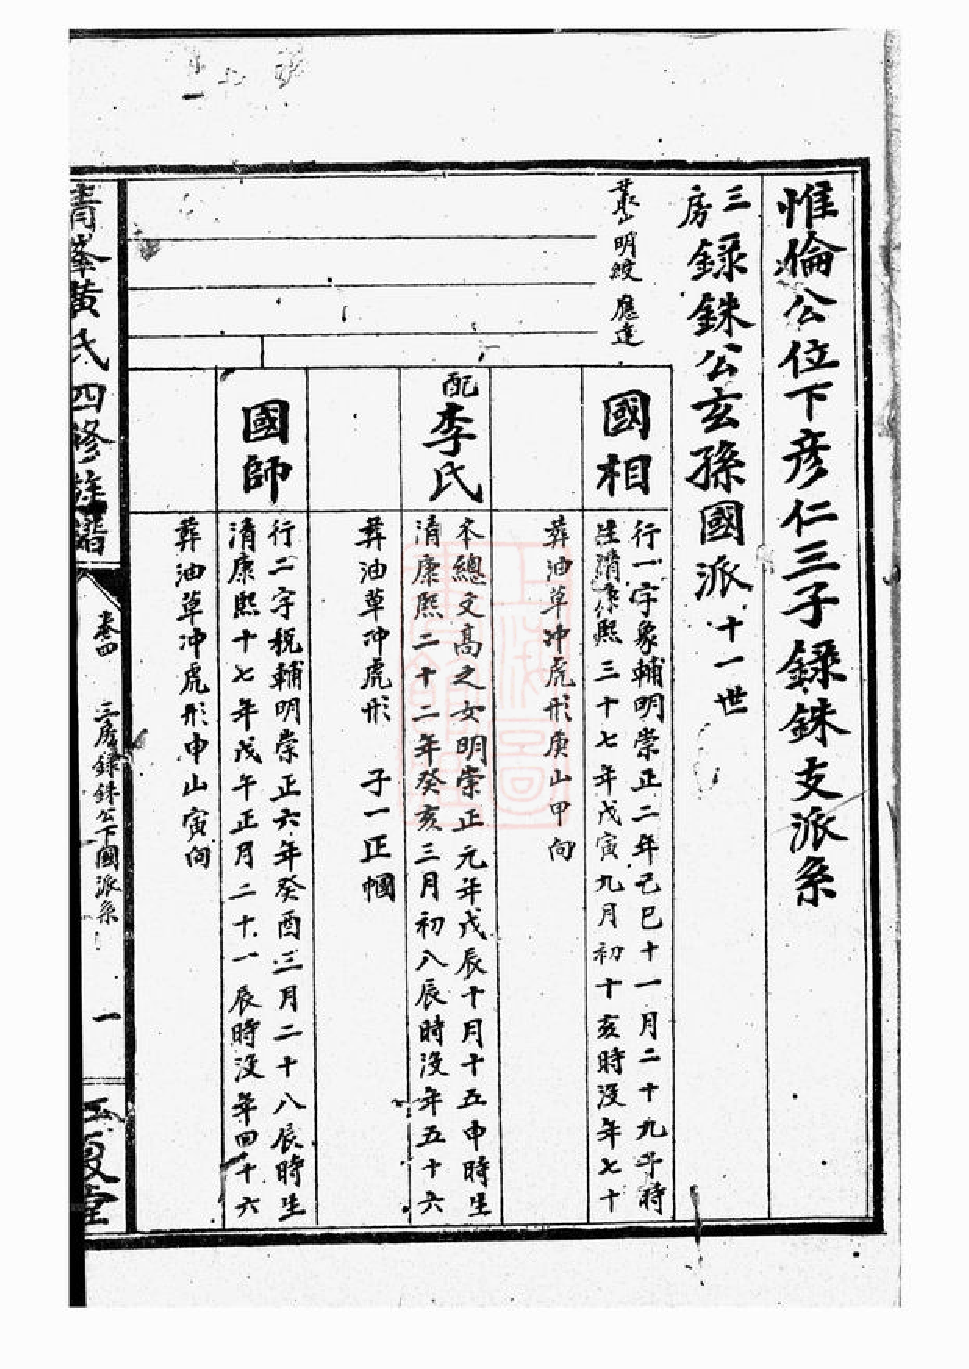 惟倫公位下彥仁三子錄銖支派系
三房錄銖公玄孫國派十一世
叢山明紋應達
國相
行一字象輔明崇正二年己巳十一月二十九午時
生清康熙三十七年戊寅九月初十亥時沒年七十
葬油草冲虎形庚山甲向
配李氏
本總文高之女明崇正元年戊辰十月十五申時生
清康熙二十二年癸亥三月初八辰時沒年五十六
葬油草冲虎形 子一正幗
國師
行二字税輔明崇正六年癸酉三月二十八辰時生
清康熙十七年戊午正月二十一辰時沒年四十六
葬油草冲虎形申山寅向
青峯黃氏四修族譜
卷四
三房錄銖公下國派系
一
江夏堂
上海圖書館藏